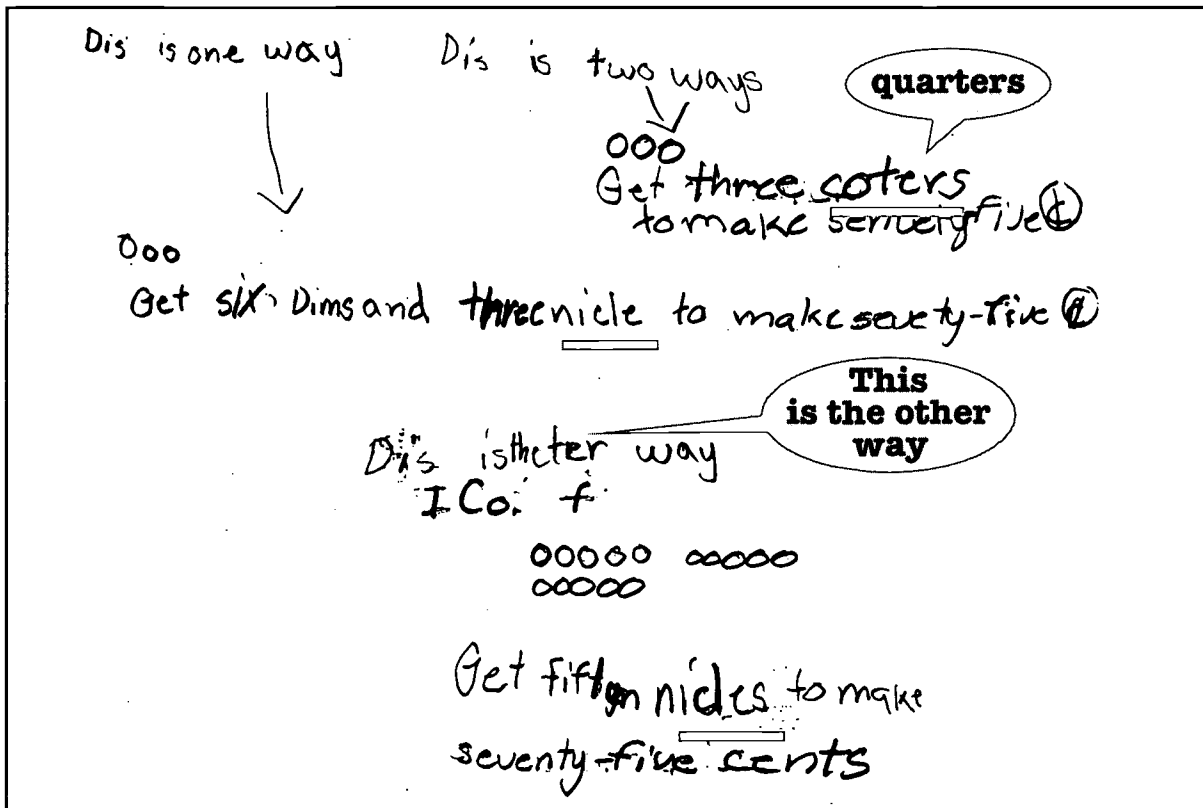 Dis is one way
Dis is two ways
quarters
Get three coters
to make servety-five ¢
Get six Dims and three nicle to make sevety-five ¢
This
is the other
way
Dis is theter way
I Co. f
Get nicles to make
seventy-five cents